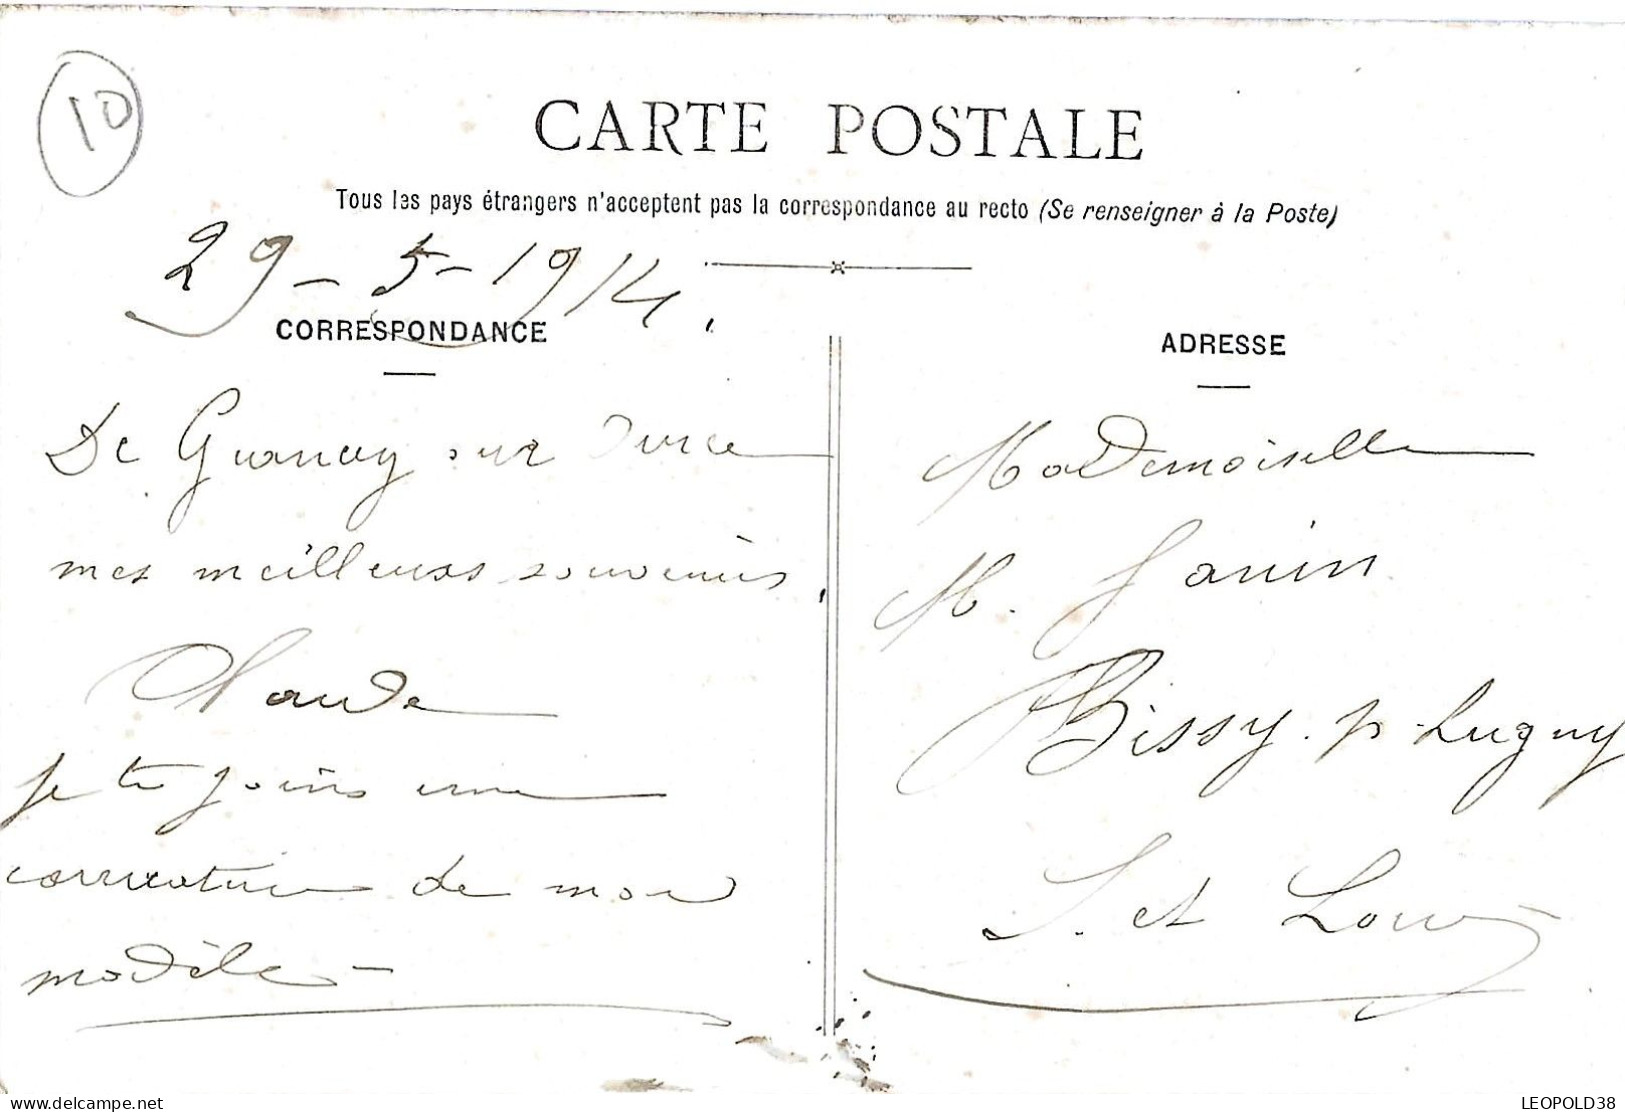 10
CARTE POSTALE
Tous les pays étrangers n'acceptent pas la correspondance au recto (Se renseigner à la Poste)
29-5-1914.
CORRESPONDANCE
De Guancey sur Ource
mes meilleurs souvenirs,
Claude
je te joins une
carricature de mon
modèle -
ADRESSE
Mademoiselle
M. Janin
Bissy. p. Lugny
S. et Loire
delcampe.net
LEOPOLD38